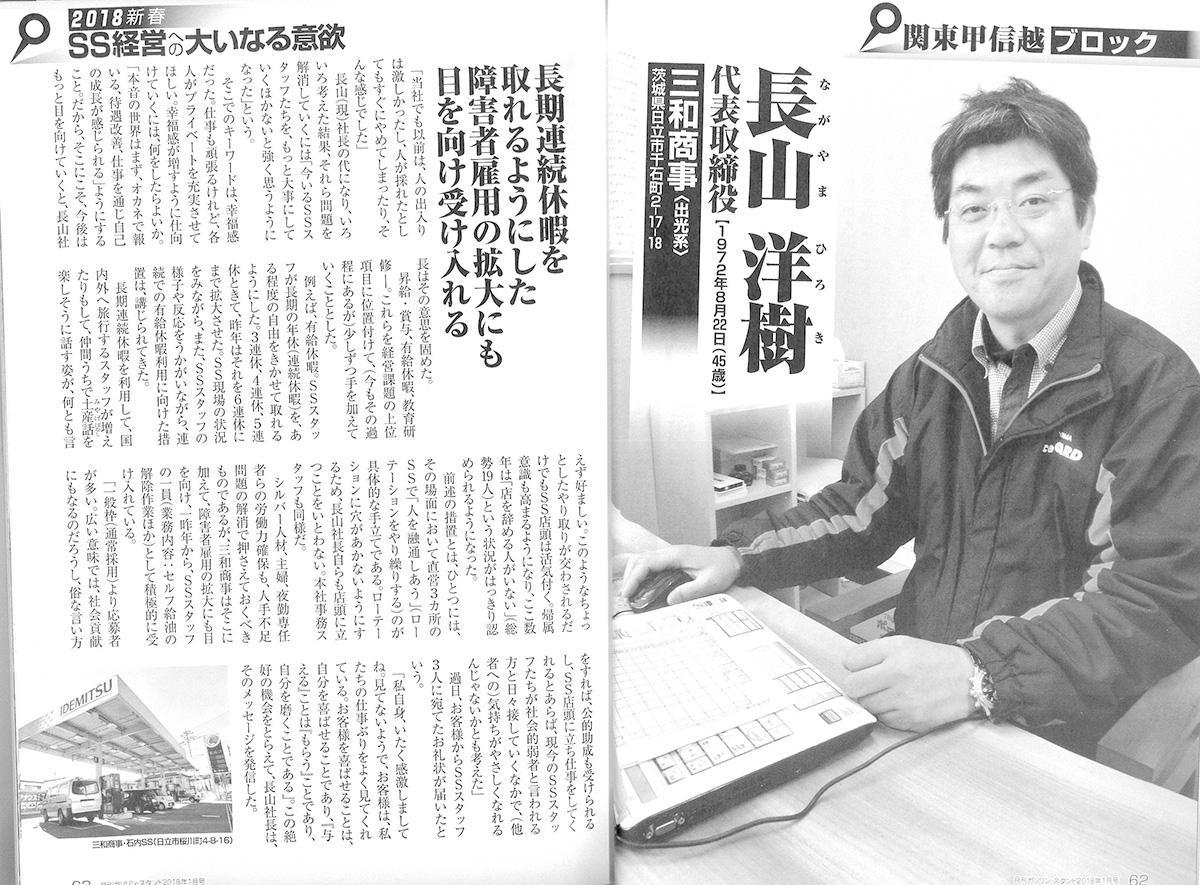 関東甲信越ブロック
ながやま ひろき
長山 洋樹
代表取締役【1972年8月22日(45歳)】
三和商事〈出光系〉
茨城県日立市千石町2-17-18
2018新春
SS経営への大いなる意欲
長期連続休暇を
取れるようにした
障害者雇用の拡大にも
目を向け受け入れる
「当社でも以前は、人の出入り
は激しかったし、人が採れたとし
てもすぐにやめてしまったり、そ
んな感じでした」
長山(現)社長の代になり、いろ
いろ考えた結果、それら問題を
解消していくには、「今いるSSス
タッフたちを、もっと大事にして
いくほかないと強く思うように
なった」という。
そこでのキーワードは、幸福感
だった。仕事も頑張るけれど、各
人がプライベートを充実させて
ほしい。幸福感が増すように仕向
けていくには、何をしたらよいか。
「本音の世界はまず、オカネで報
いる、待遇改善、仕事を通じ自己
の成長が感じられる』ようにする
こと。だから、そこにこそ、今後は
もっと目を向けていくと、長山社
長はその意思を固めた。
昇給、賞与、有給休暇、教育研
修―。これらを経営課題の上位
項目に位置付けて、(今もその過
程にあるが)少しずつ手を加えて
いくこととした。
例えば、有給休暇。SSスタッ
フが長期の年休(連続休暇)を、あ
る程度の自由をきかせて取れる
ようにした。3連休、4連休、5連
休ときて、昨年はそれを6連休に
まで拡大させた。SS現場の状況
をみながら、また、SSスタッフの
様子や反応をうかがいながら、連
続での有給休暇利用に向けた措
置は、講じられてきた。
長期連続休暇を利用して、国
内外へ旅行するスタッフが増え
たりもして、仲間うちで土産話を
楽しそうに話す姿が、何とも言
えず好ましい。このようなちょっ
としたやり取りが交わされるだ
けでもSS店頭は活気付く。帰属
意識も高まるようになり、ここ数
年は「店を辞める人がいない」(総
勢19人)という状況がはっきり認
められるようになった。
前述の措置とは、ひとつには、
その場面において直営3カ所の
SSで「人を融通しあう」(ロー
テーションをやり繰りする)のが
具体的な手立てである。ローテー
ションに穴があかないようにす
るため、長山社長自らも店頭に立
つことをいとわない。本社事務ス
タッフも同様だ。
シルバー人材、主婦、夜勤専任
者らの労働力確保も、人手不足
問題の解消で押さえておくべき
ものであるが、三和商事はそこに
加えて、障害者雇用の拡大にも目
を向け、一昨年から、SSスタッフ
の一員(業務内容:セルフ給油の
解除作業ほか)として積極的に受
け入れている。
「一般枠(通常採用)より応募者
が多い。広い意味では、社会貢献
にもなるのだろうし、俗な言い方
をすれば、公的助成も受けられる
し、SS店頭に立ち仕事をしてく
れるとあらば、現今のSSスタッ
フたちが社会的弱者と言われる
方と日々接していくなかで(他
者への)気持ちがやさしくなれる
んじゃないかとも考えた」
過日、お客様からSSスタッフ
3人に宛てたお礼状が届いたと
いう。
「私自身、いたく感激しまして
ね。見てないようで、お客様は、私
たちの仕事ぶりをよく見てくれ
ている。お客様を喜ばせることは、
自分を喜ばせることであり、『与
える』ことは『もらう』ことであり、
自分を磨くことである」。この絶
好の機会をとらえて、長山社長は、
そのメッセージを発信した。
IDEMITSU
三和商事・石内SS(日立市桜川町4-8-16)
月刊ガソリン・スタンド2018年1月号
月刊ガソリン・スタンド2018年1月号 62